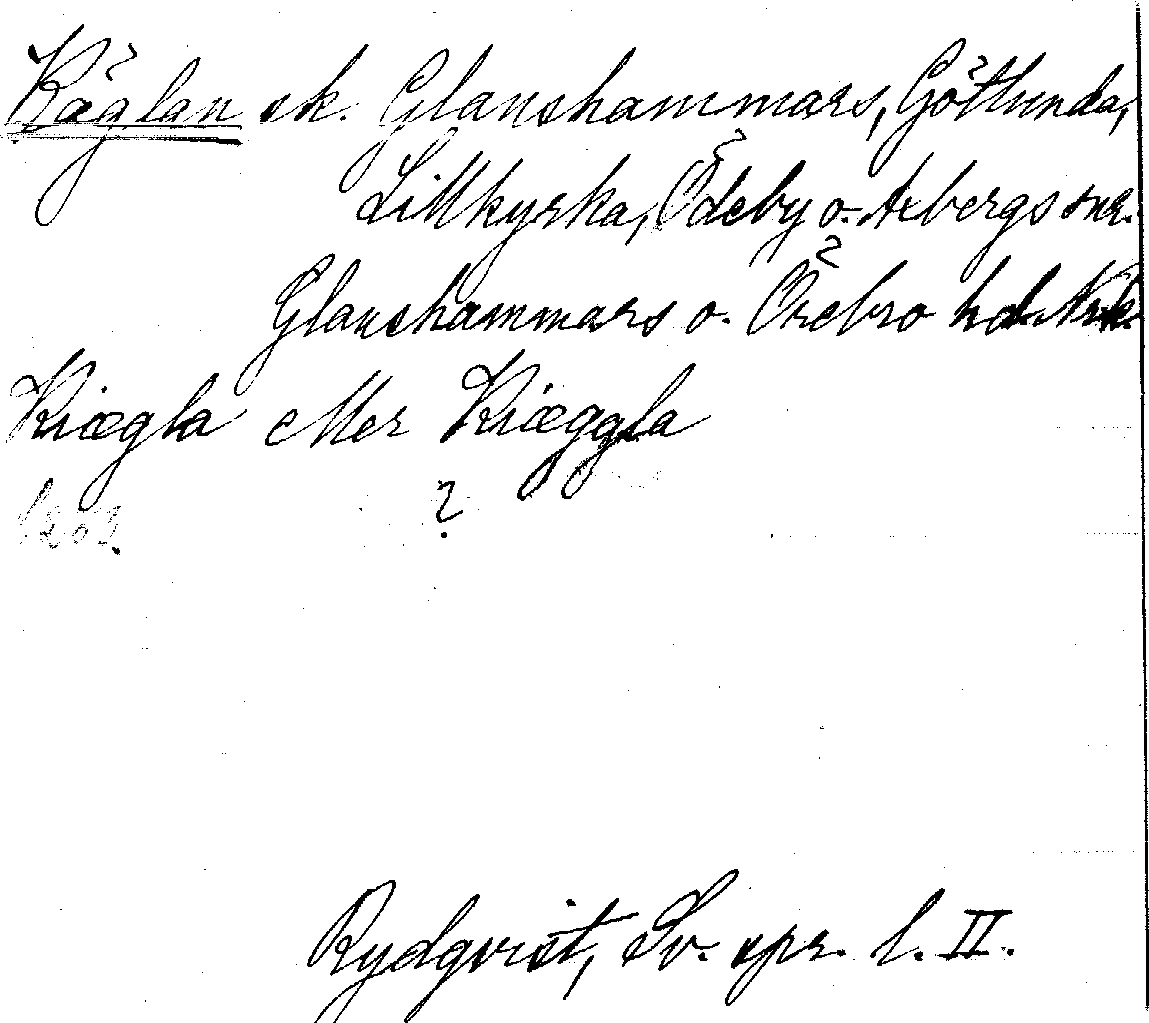 Käglan sk. Glanshammars, Götlunda,
Lillkyrka, Ödeby o. Axbergs snr.
Glanshammars o. Örebro hd. Nrk.
Kiægla eller Kiæggla
1202. ?
Rydqvist, Sv. spr. l. II.